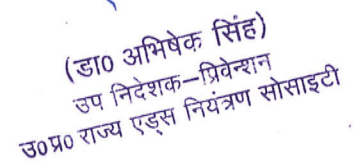 (डा० अभिषेक सिंह)
उप निदेशक–प्रिवेन्शन
उ०प्र० राज्य एड्स नियंत्रण सोसाइटी